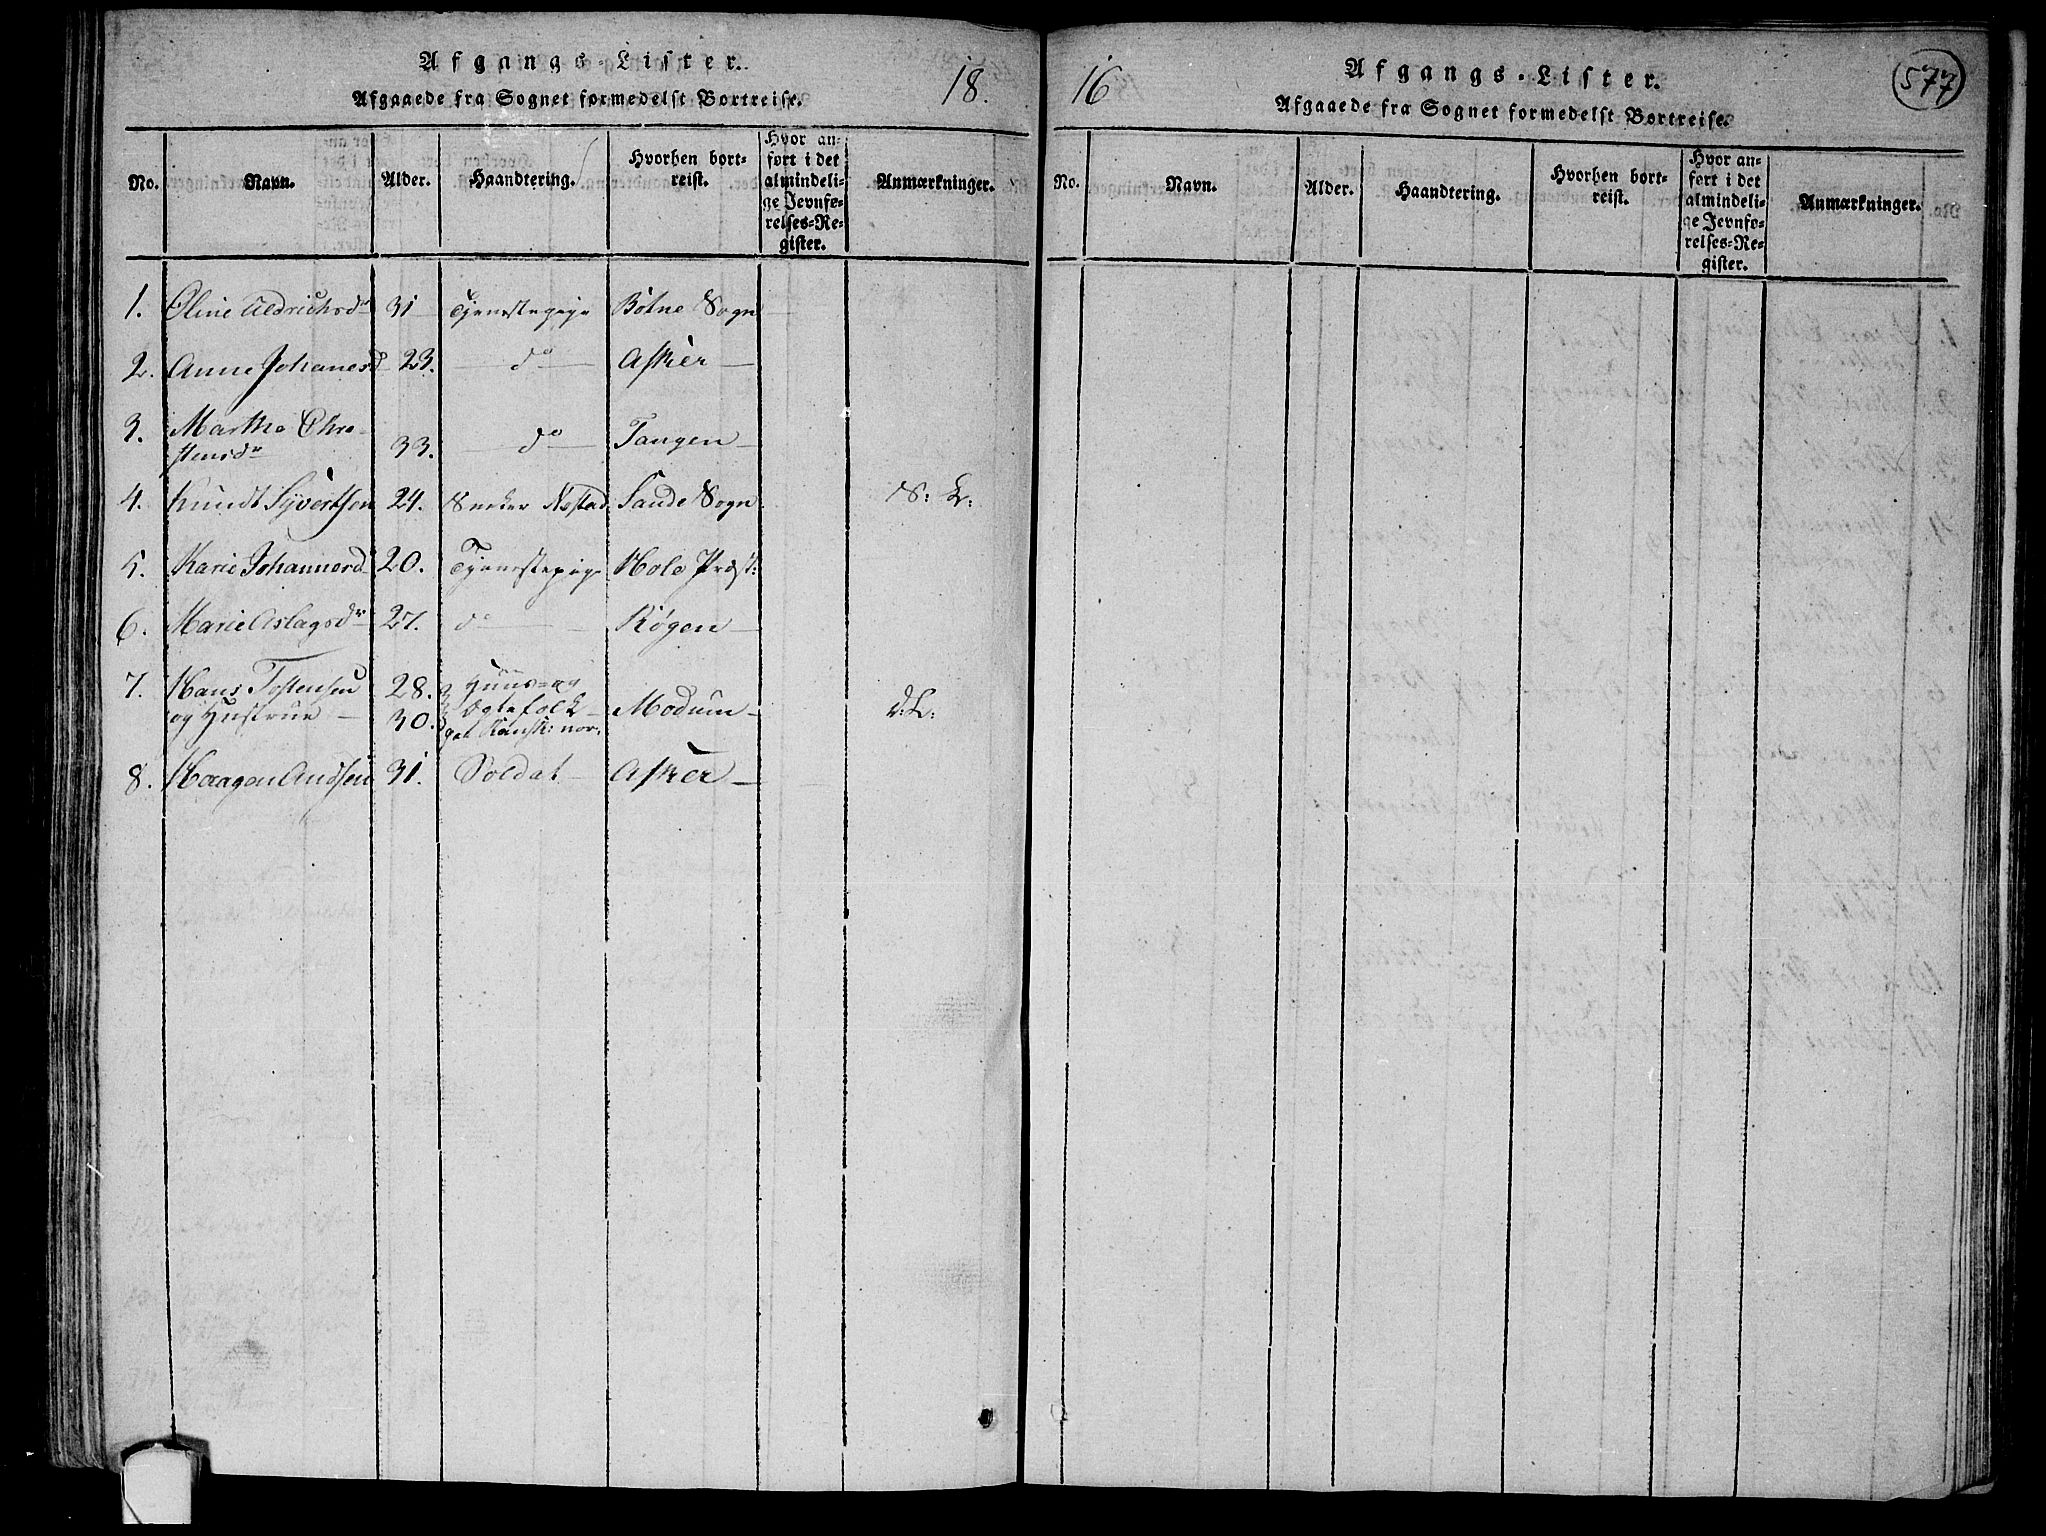 Afgangs-Lister.
Afgaaede fra Sognet formedelst Bortreise.
18.
No.
Navn.
Alder.
Haandtering.
Hvorhen bort-
reist.
Hvor an-
ført i det
almindeli-
ge Jevnfø-
relses-Re-
gister.
Anmærkninger.
1. Oline Aldrichsdr 31 Tjenestepige Botne Sogn
2. Anne Johanesd 23. do Asker
3. Marthe Chri-
stensdr 33. do Tangen
4. Knudt Syvertsen 24. Sneker Sande Sogn S: L:
5. Karie Johannesd 20. Tjenestepige Hole Præst:
6. Marie Aslagsdr 27. do Røgen
7. Hans Tostensen 28. Huus- og
og Hustrue 30. Ægtefolk Modum d: L:
8. Haagen Andsen 31. Soldat Asker
16
Afgangs-Lister.
577
Afgaaede fra Sognet formedelst Bortreise.
No.
Navn.
Alder.
Haandtering.
Hvorhen bort-
reist.
Hvor an-
ført i det
almindeli-
ge Jevnfø-
relses-Re-
gister.
Anmærkninger.